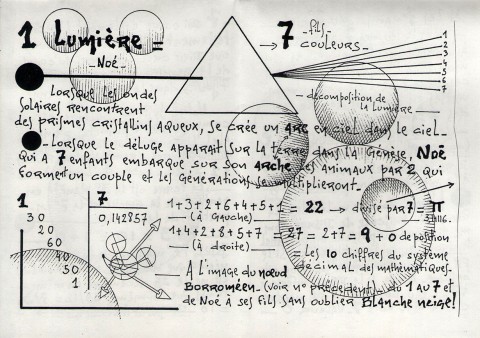 1 Lumière =
_ Noé _
→ 7 _ fils _
couleurs _
1
2
3
4
5
6
7
_ décomposition de
la Lumière _
Lorsque les ondes
solaires rencontrent
des prismes cristallins aqueux, se crée un arc en ciel dans le ciel _
_ Lorsque le déluge apparait sur la terre dans la Génèse, Noé
qui a 7 enfants embarque sur son arche les animaux par 2 qui
forment un couple et les générations se multiplieront _
1 7
30 0,142857
20
60
40
50
1
1+3+2+6+4+5+1 = 22 → divisé par 7 = π
_ (à gauche) _ 3,1416.
1+4+2+8+5+7 = 27 = 2+7 = 9 + 0 de position
_ (à droite) _ = Les 10 chiffres du système
décimal des mathématiques _
_ A l'image du nœud
Borroméen _ (voir n° précédent) _ du 1 au 7 et
de Noé à ses fils sans oublier Blanche neige!